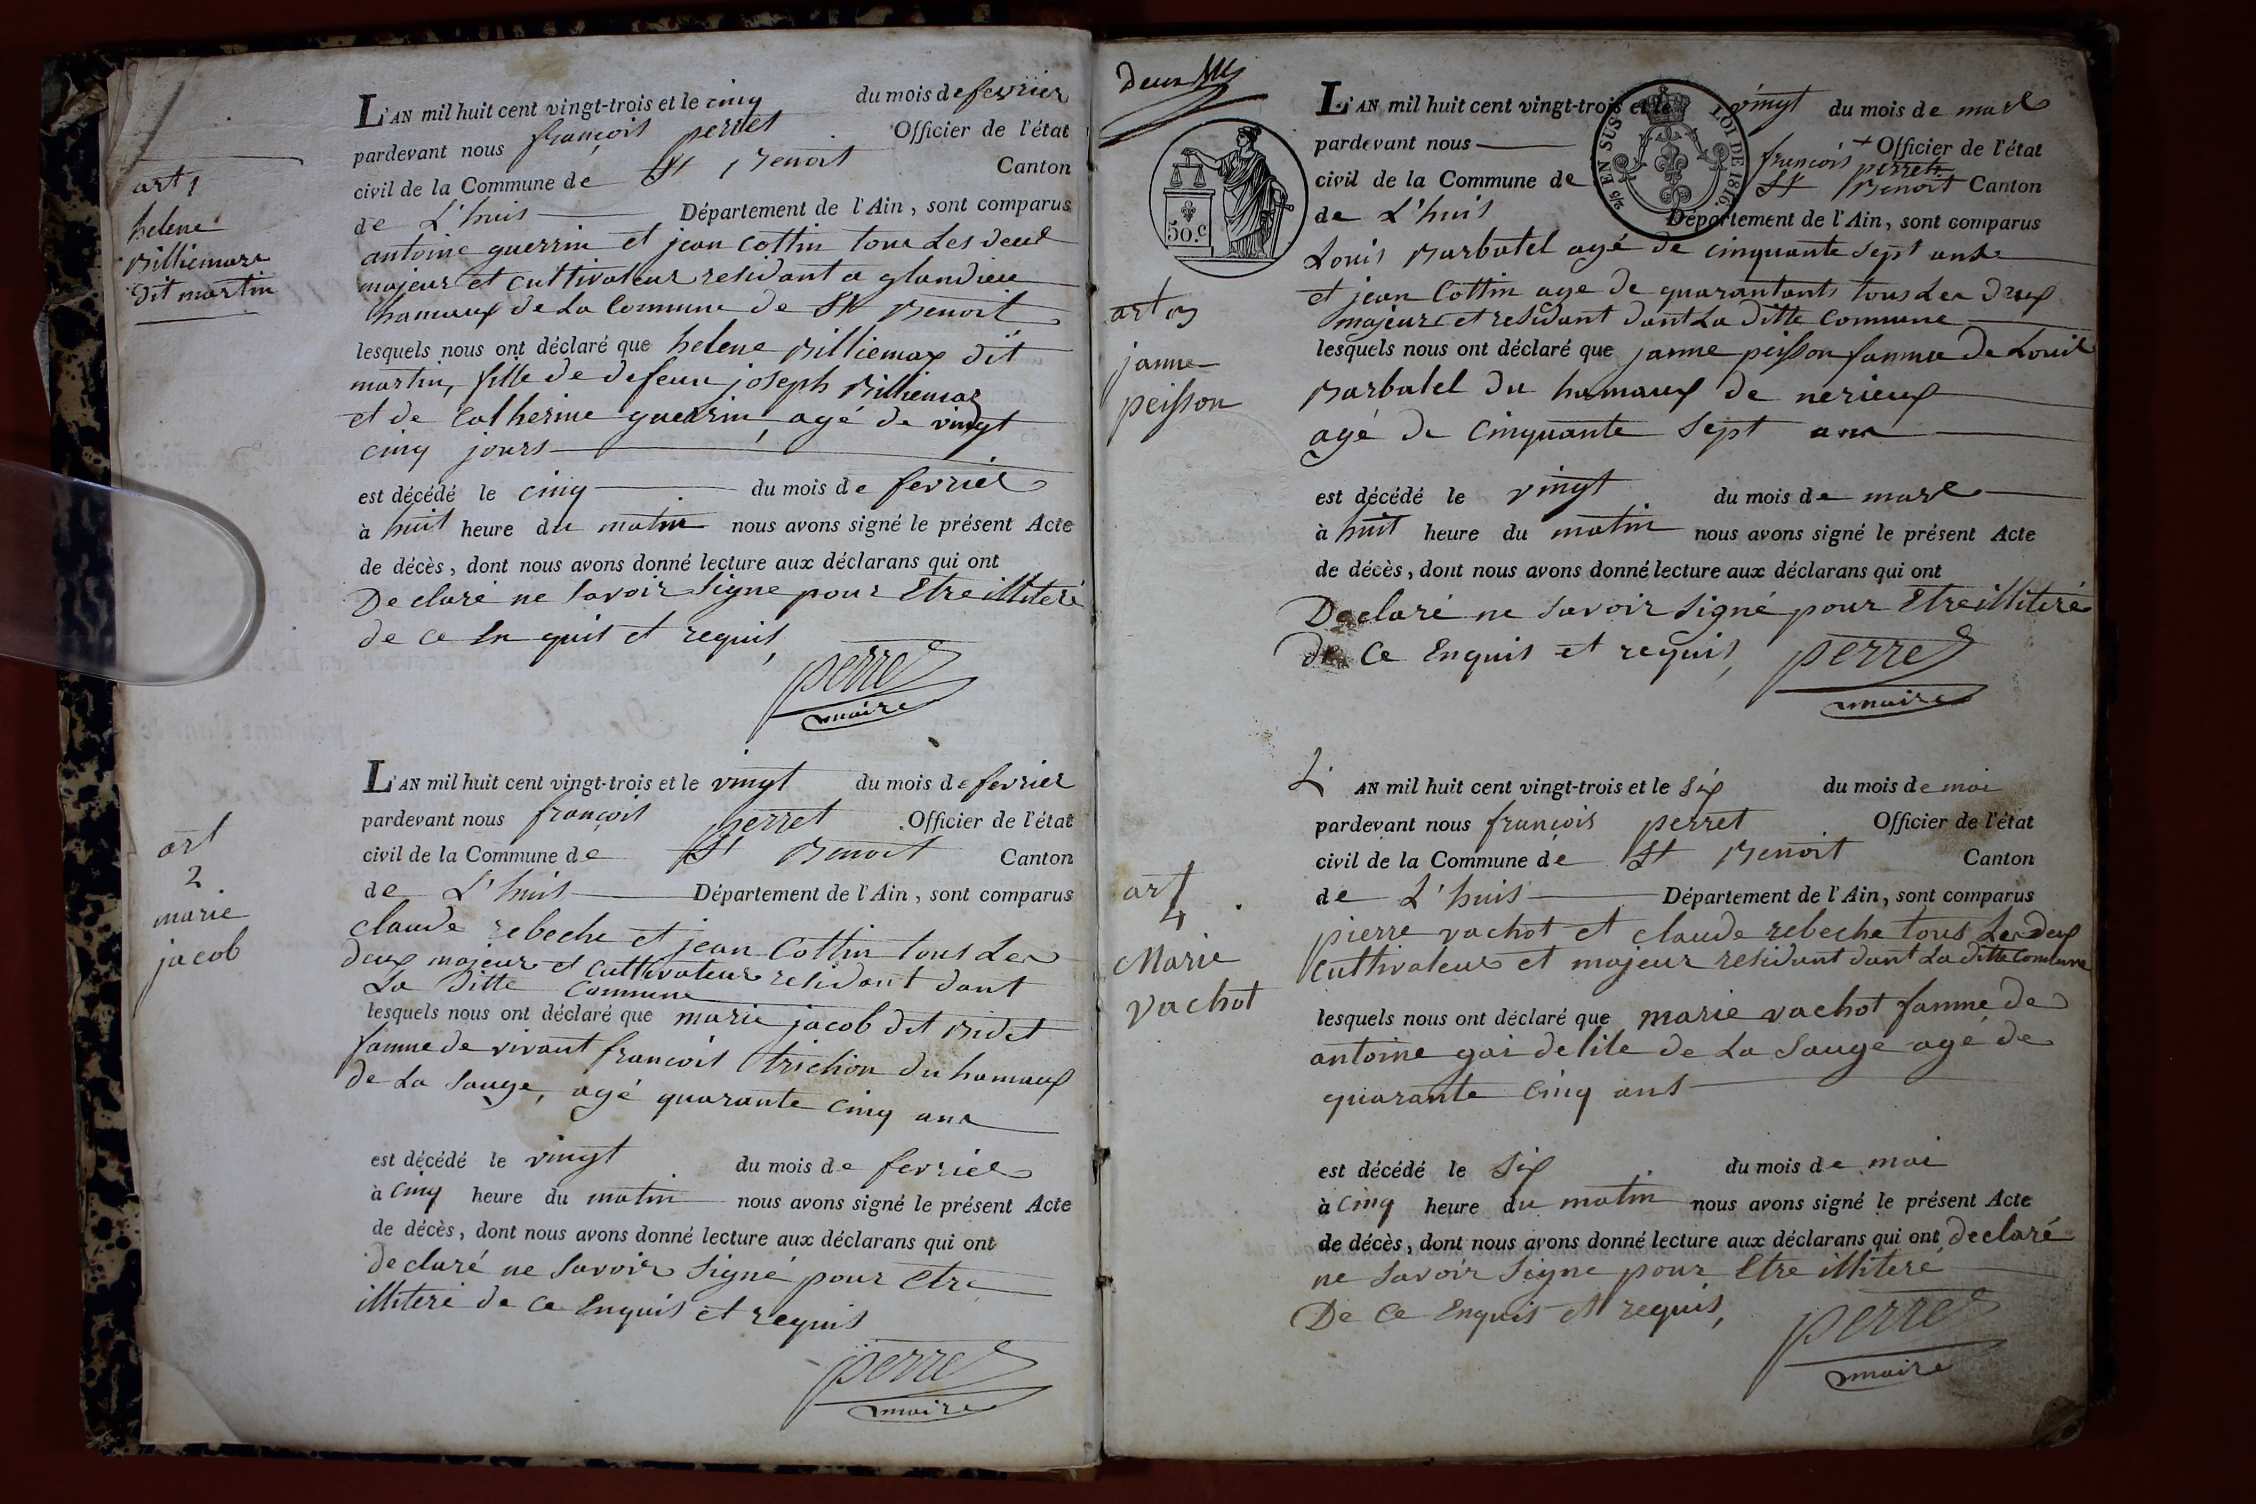 art 1
helene
Billiemax
dit martin
L'AN mil huit cent vingt-trois et le cinq du mois de fevrier
pardevant nous françois perret Officier de l'état
civil de la Commune de St Benoit Canton
de L'huis Département de l'Ain, sont comparus
antoine guerrin et jean Cottin tous Les deux
majeur et cultivateur residant a glandieu
hamaux de La Commune de St Benoit
lesquels nous ont déclaré que helene Billiemax dit
martin, fille de defeun joseph Billiemax
et de Catherine guerrin, agé de vingt
cinq jours
est décédé le cinq du mois de fevrier
à huit heure du matin nous avons signé le présent Acte
de décès, dont nous avons donné lecture aux déclarans qui ont
Declaré ne Savoir Signe pour Etre illiteré
de ce En quis et requis,
perret
maire
art
2
marie
jacob
L'AN mil huit cent vingt-trois et le vingt du mois de fevrier
pardevant nous françois perret Officier de l'état
civil de la Commune de St Benoit Canton
de L'huis Département de l'Ain, sont comparus
claude rebeche et jean Cottin tous Les
deux majeur et cultivateur residant dant
La Ditte Commune
lesquels nous ont déclaré que marie jacob dit Bidet
famme de vivant francois trichon du hamaux
de La Sauge, agé quarante cinq ans
est décédé le vingt du mois de fevrier
à cinq heure du matin nous avons signé le présent Acte
de décès, dont nous avons donné lecture aux déclarans qui ont
declaré ne Savoir Signé pour Etre
illiteré de ce Enquis et requis
perret
maire
Deux
50.c
2/5 EN SUS LOI DE 1816.
art 3
janne
peisson
L'AN mil huit cent vingt-trois et le vingt du mois de mars
pardevant nous françois perret Officier de l'état
civil de la Commune de St Benoit Canton
de L'huis Département de l'Ain, sont comparus
Louis Barbatel agé de cinquante Sept ans
et jean Cottin age de quarantants tous Les Deux
majeur et residant dant La ditte Commune
lesquels nous ont déclaré que janne peisson famme de Louis
Barbatel du hamaux de nerieux
agé de Cinquante Sept ans
est décédé le vingt du mois de mars
à huit heure du matin nous avons signé le présent Acte
de décès, dont nous avons donné lecture aux déclarans qui ont
Declaré ne Savoir Signé pour Etre illiteré
de Ce Enquis et requis,
perret
maire
art
4
Marie
vachot
L'AN mil huit cent vingt-trois et le Six du mois de mai
pardevant nous françois perret Officier de l'état
civil de la Commune de St Benoit Canton
de L'huis Département de l'Ain, sont comparus
pierre vachot et claude rebeche tous Les deux
Cultivateur et majeur residant dant La ditte Commune
lesquels nous ont déclaré que marie vachot famme de
antoine gai delile de La Sauge agé de
quarante Cinq ans
est décédé le Six du mois de mai
à Cinq heure du matin nous avons signé le présent Acte
de décès, dont nous avons donné lecture aux déclarans qui ont declaré
ne Savoir Signe pour Etre illiteré
De Ce Enquis et requis,
perret
maire